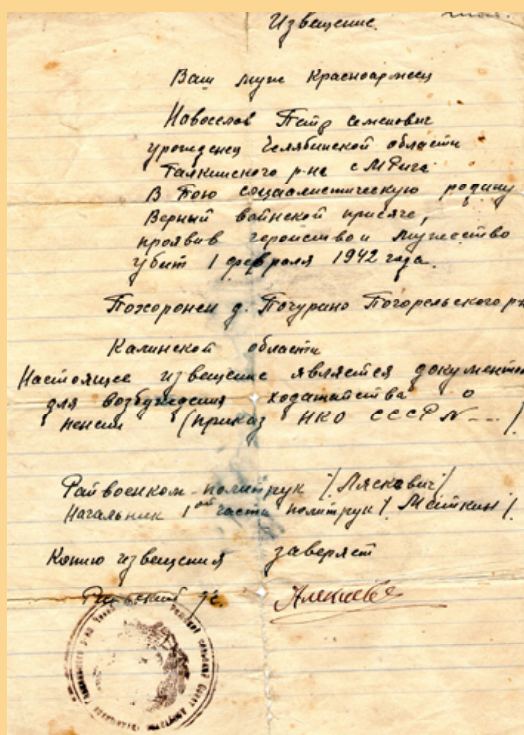 Извещение.
Ваш муж Красноармеец
Новоселов Петр Семенович
урожденец Челябинской области
Галкинского р-на с М Рига
В бою социалистическую родину
Верный воинской присяге,
проявив геройство и мужество
убит 1 февраля 1942 года.
Похоронен д. Почурино Погорельского р-н
Калинской области
Настоящее извещение является документом
для возбуждения ходатайства о
пенсии (приказ НКО СССР N---)
Райвоенком-политрук /Ляскович/
Начальник 1ой части политрук / Меткин /
Копию извещения заверяет